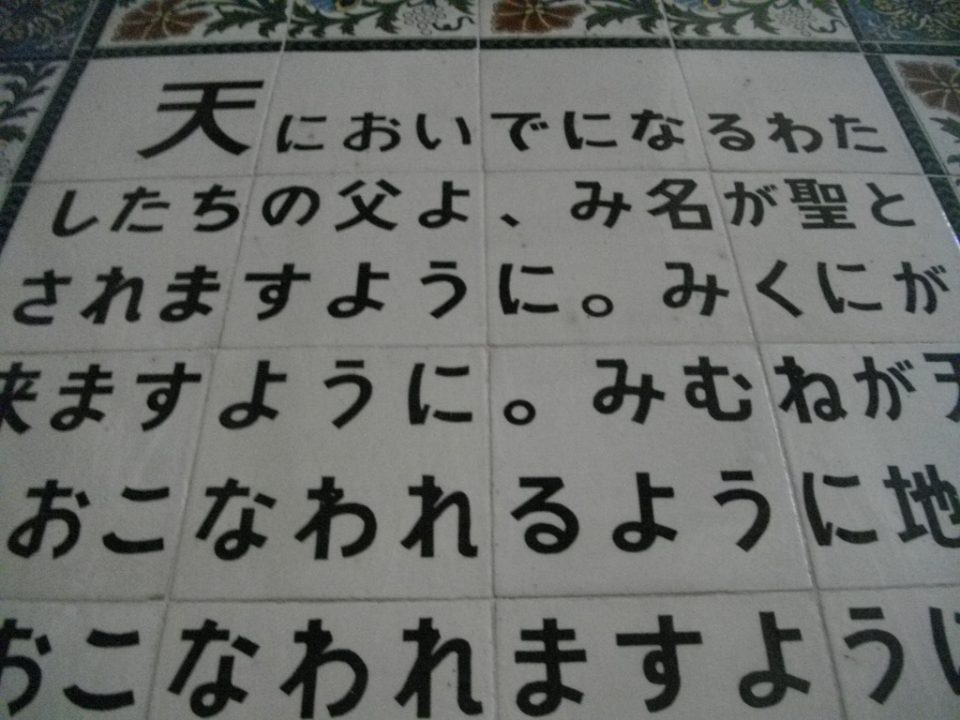 天においでになるわた
したちの父よ、み名が聖と
されますように。みくにが
来ますように。みむねが天
おこなわれるように地
おこなわれますように